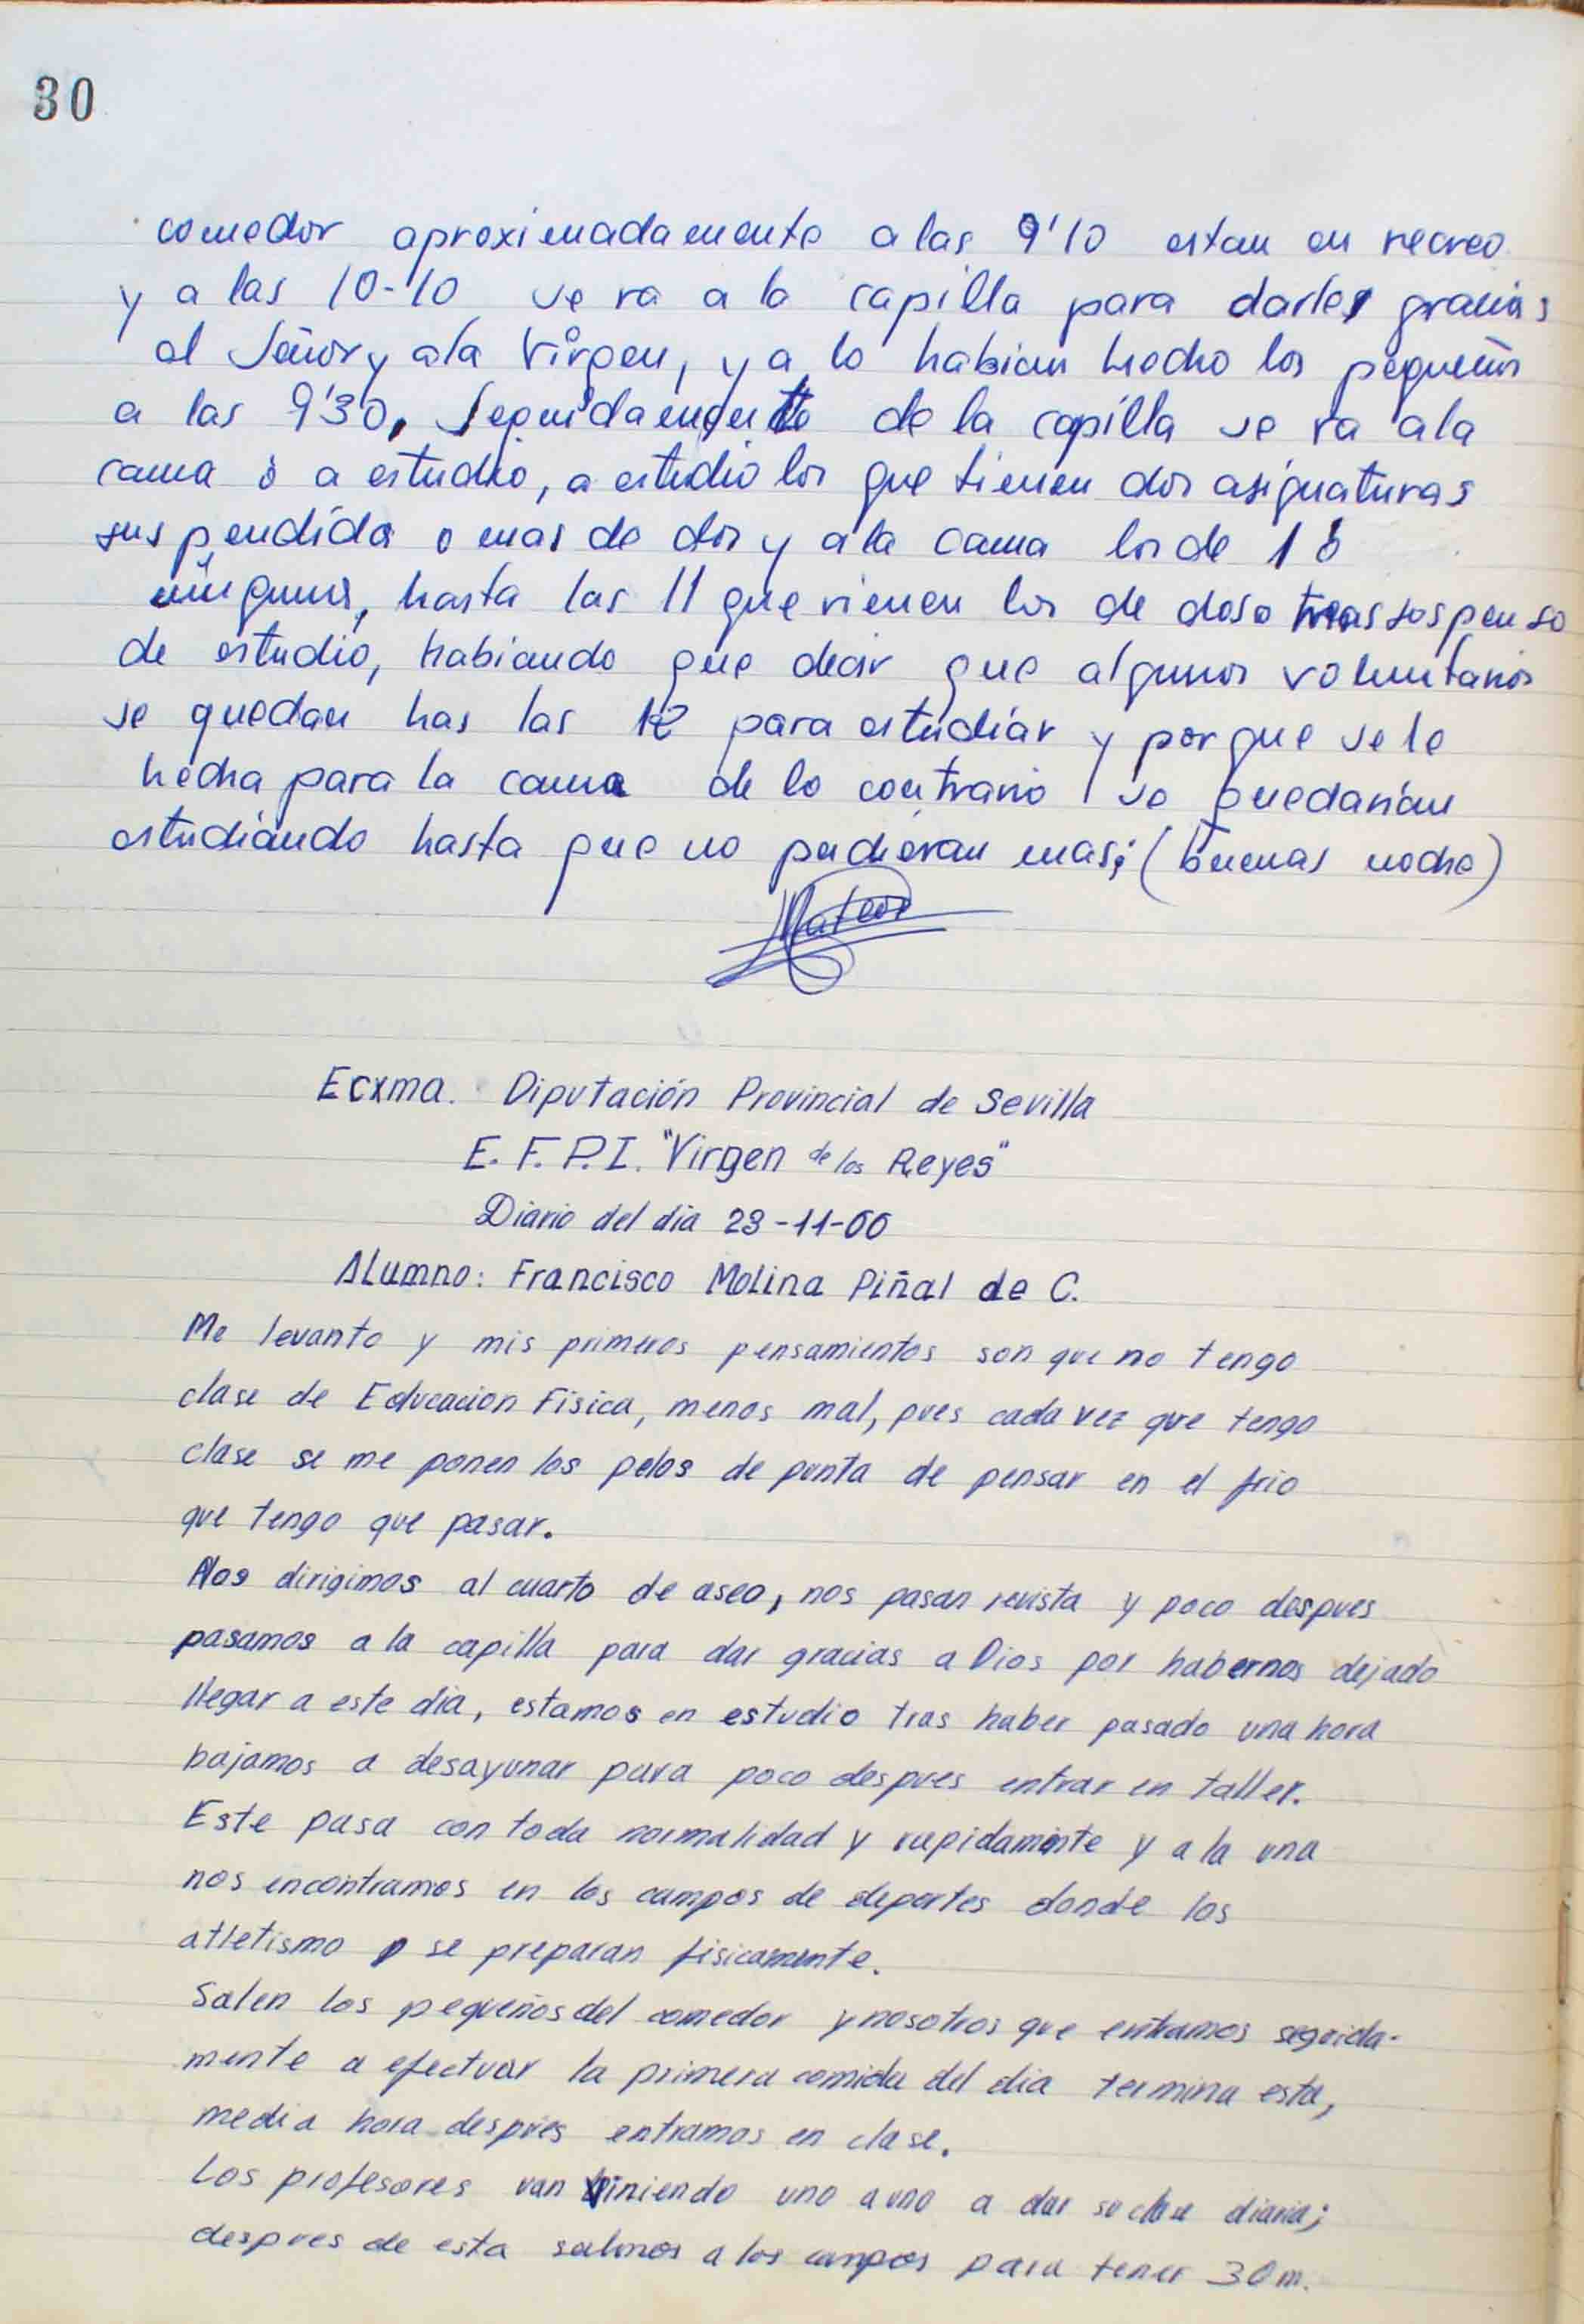 30
comedor aproximadamente a las 9'10 estan en recreo
y a las 10-10 se va a la capilla para darles gracias
al Señor y a la Virgen, ya lo habian hecho los pequeños
a las 9'30, Seguidamente de la capilla se va a la
cama ò a estudio, a estudio los que tienen dos asignaturas
suspendida o mas de dos y a la cama los de 1 ò
ninguna, hasta las 11 que vienen los de dos o mas sospenso
de estudio, habiendo que decir que algunos voluntarios
se quedan has las 12 para estudiar y porque se le
hecha para la cama de lo contrario se quedarian
estudiando hasta que no pudieran mas; (buenas noche)
Mateos
Ecxma. Diputación Provincial de Sevilla
E. F. P. I. "Virgen de los Reyes"
Diario del dia 23-11-66
Alumno: Francisco Molina Piñal de C.
Me levanto y mis primeros pensamientos son que no tengo
clase de Educacion Fisica, menos mal, pues cada vez que tengo
clase se me ponen los pelos de punta de pensar en el frio
que tengo que pasar.
Nos dirigimos al cuarto de aseo, nos pasan revista y poco despues
pasamos a la capilla para dar gracias a Dios por habernos dejado
llegar a este dia, estamos en estudio tras haber pasado una hora
bajamos a desayunar para poco despues entrar en taller.
Este pasa con toda normalidad y rapidamente y a la una
nos encontramos en los campos de deportes donde los
atletismo se preparan fisicamente.
Salen los pequeños del comedor y nosotros que entramos seguida-
mente a efectuar la primera comida del dia termina esta,
media hora despues entramos en clase.
Los profesores van viniendo uno a uno a dar su clase diaria;
despues de esta salimos a los campos para tener 30 m.